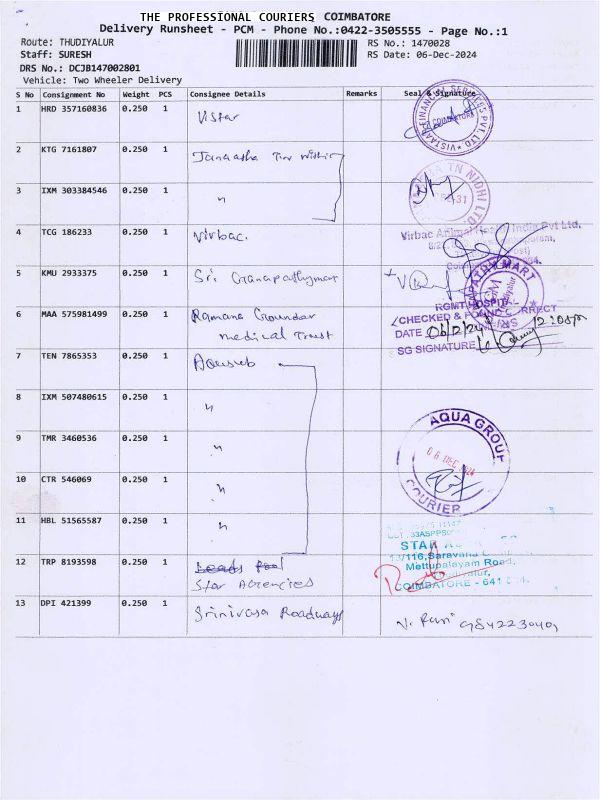 THE PROFESSIONAL COURIERS COIMBATORE
Delivery Runsheet - PCM - Phone No.:0422-3505555 - Page No.:1
Route: THUDIYALUR
RS No.: 1470028
Staff: SURESH
RS Date: 06-Dec-2024
DRS No.: DCJB147002801
Vehicle: Two Wheeler Delivery
S No Consignment No Weight PCS Consignee Details Remarks Seal & Signature
1 HRD 357160836 0.250 1 Vistar
2 KTG 7161807 0.250 1
3 IXM 303384546 0.250 1 "
4 TCG 186233 0.250 1 Virbac.
5 KMU 2933375 0.250 1 Sri Ganapathymart
6 MAA 575981499 0.250 1 Ramana Gounder
medical Trust
7 TEN 7865353 0.250 1
8 IXM 507480615 0.250 1 "
9 TMR 3460536 0.250 1 "
10 CTR 546069 0.250 1 "
11 HBL 51565587 0.250 1 "
12 TRP 8193598 0.250 1
Star Agencies
13 DPI 421399 0.250 1 Srinivasa Roadways
COIMBATORE
TN NIDHI LTD
Virbac Animal Health India Pvt Ltd,
RGMT HOSPITAL
CHECKED & FOUND CORRECT
DATE 06/12/24 12:08pm
SG SIGNATURE
AQUA GROUP
06 DEC 2024
COURIER
STAR
13/116, Saravana
Mettupalayam Road,
COIMBATORE - 641
V. Ravi 9842230409